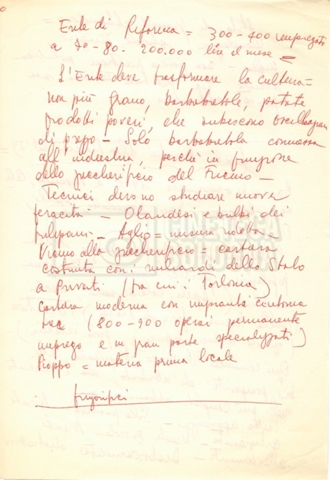 Ente di Riforma = 300-400 impiegati
a 70-80. 200.000 lire il mese =
L'Ente deve trasformare la cultura =
non più grano, barbabietole, patate
prodotti poveri, che subiscono oscillazioni
di prezzo - Solo barbabietola connessa
all'industria, perché in funzione
dello zuccherificio del Fucino -
Tecnici devono studiare nuova
- Olandesi e bulbi dei
tulipani - Aglio -
Vicino allo zuccherificio cartiera
costruita con i miliardi dello Stato
a Privati (tra cui i Torlonia)
Cartiera moderna con impianto continua
(800-900 operai permanente
impiego e in gran parte specializzati)
Pioppo = materia prima locale
frigoriferi